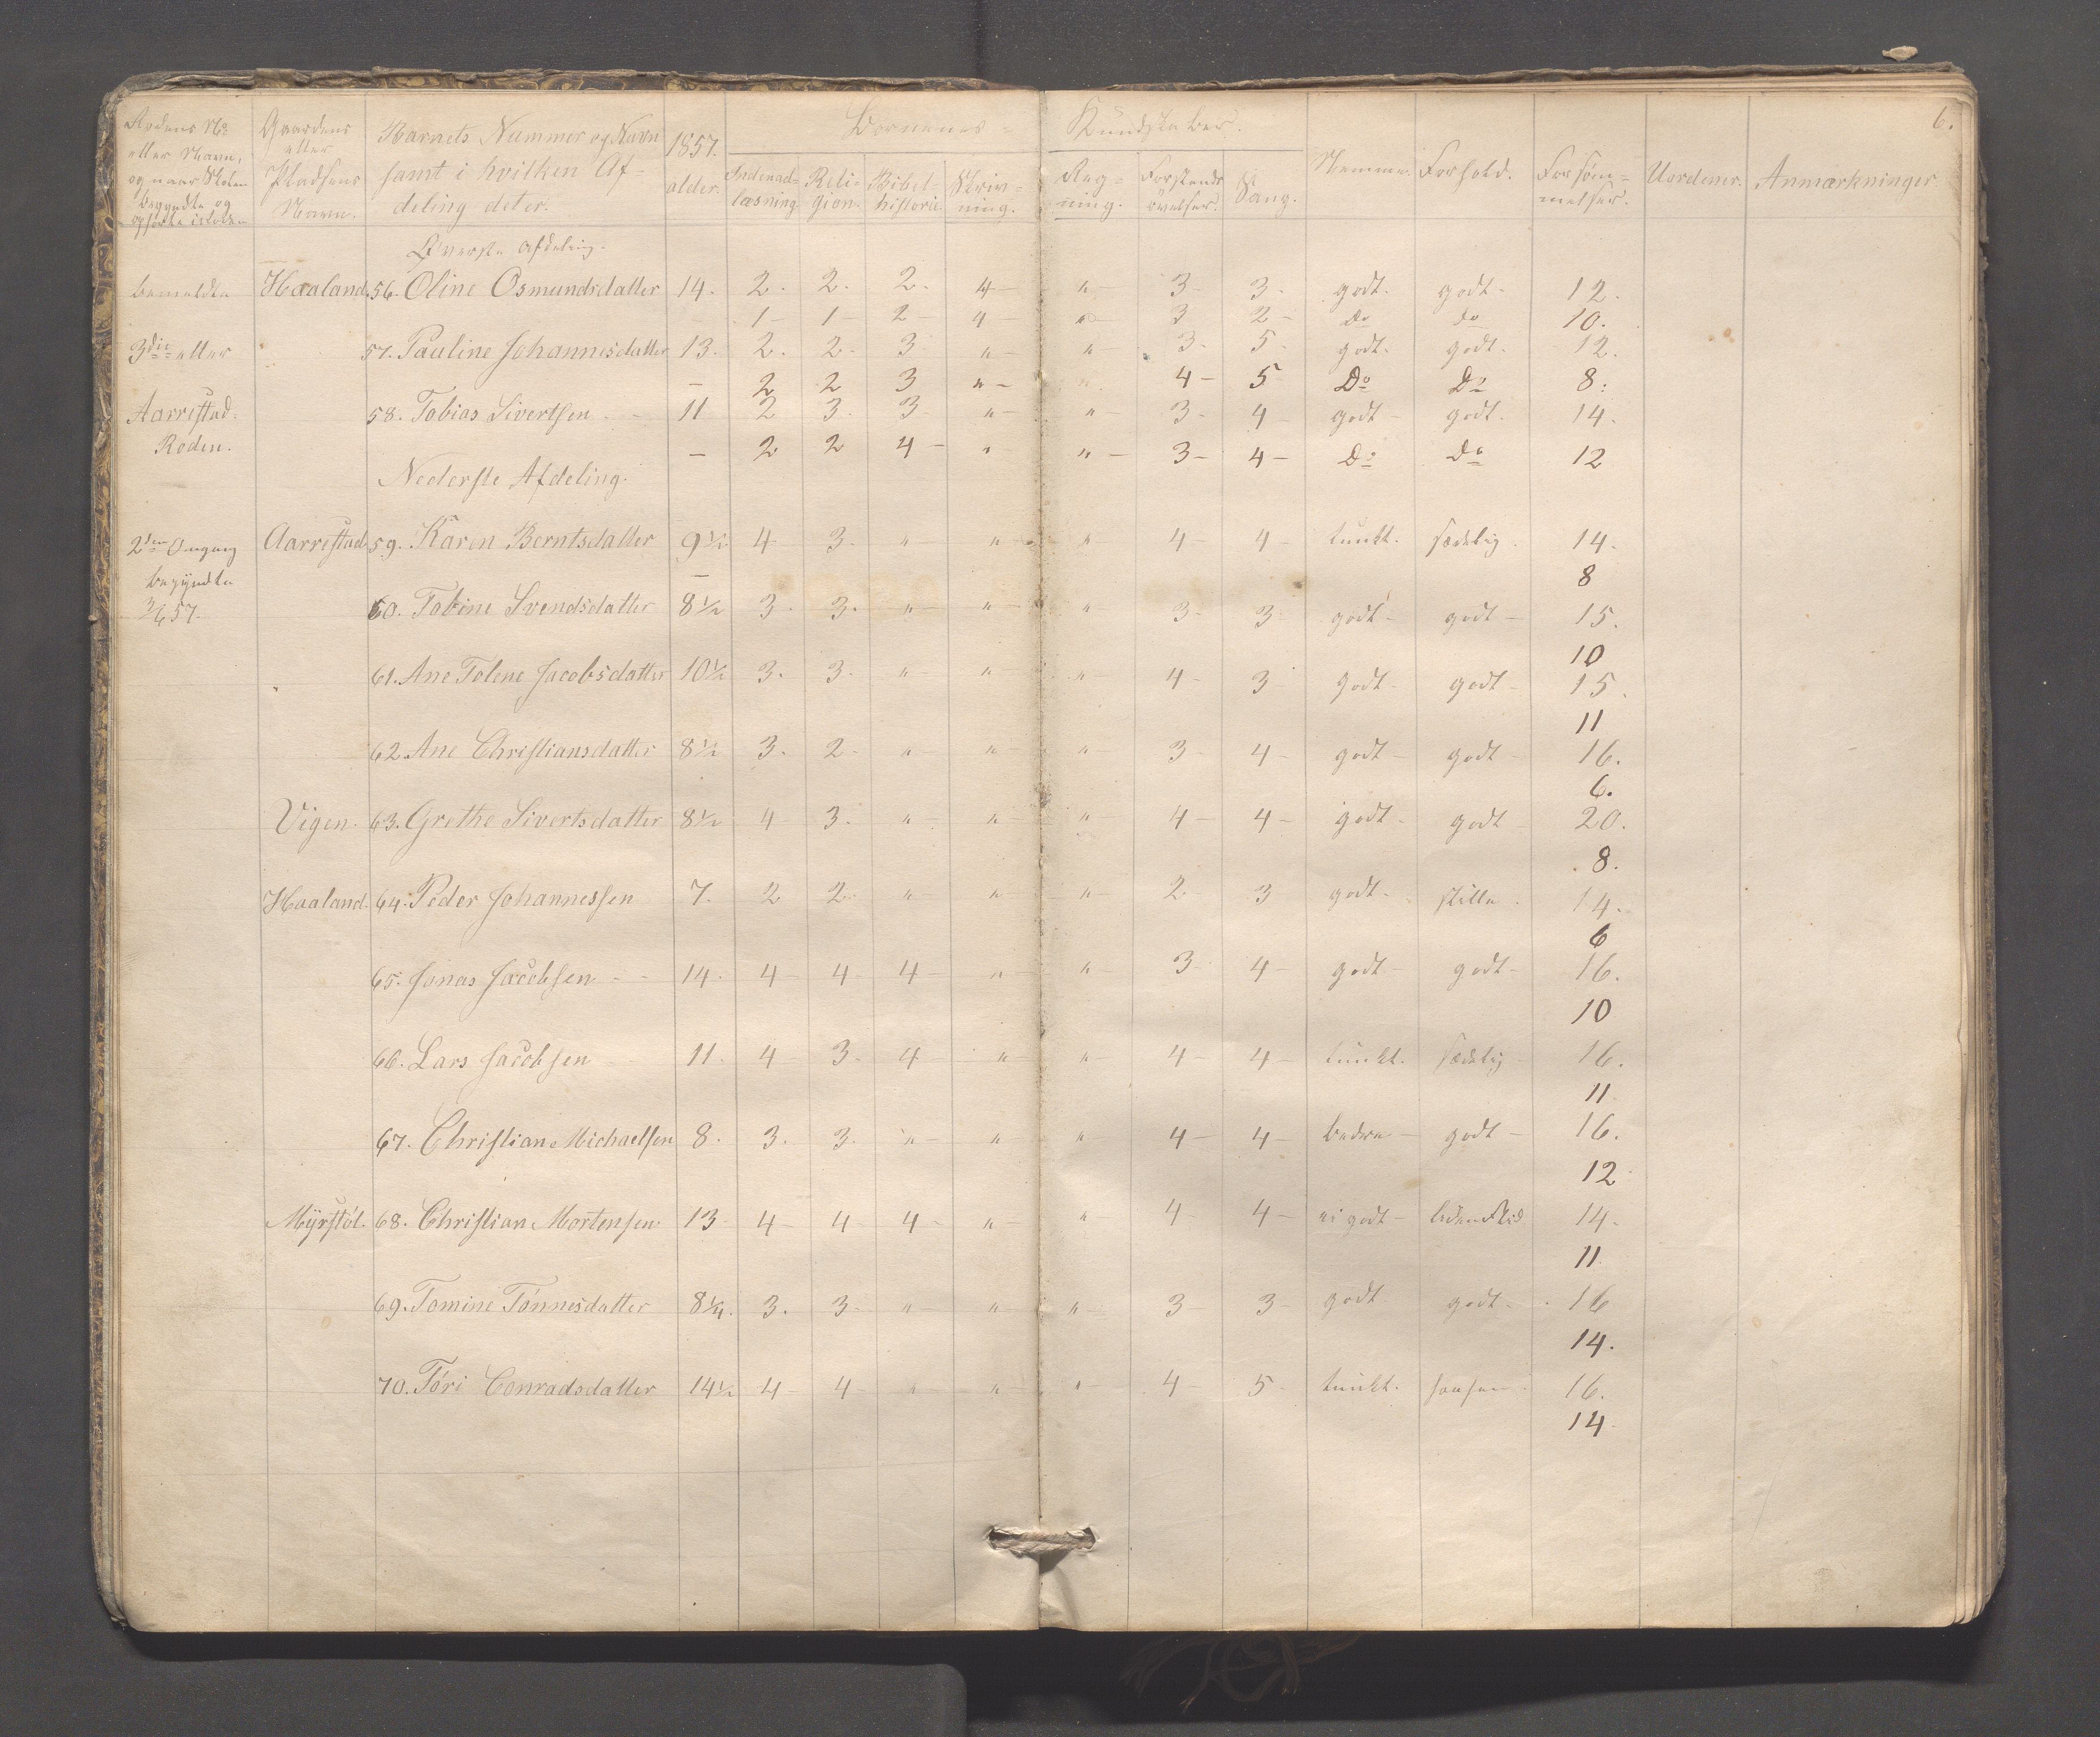 6.
Rodens No
eller Navn,
og naar Skolen
begyndte og
Gaardens
eller
Pladsens
Navn.
Barnets Nummer og Navn
samt i hvilken Af-
deling det er.
1857.
alder.
Børnenes - Kundskaber.
Indenad-
læsning.
Reli-
gion.
Bibel-
historie.
Skriv-
ning.
Reg-
ning.
Forstands
øvelser.
Sang.
Nemme.
Forhold.
Forsøm-
melser.
Uordener.
Anmærkninger
Øverste Afdeling.
bemeldte Haaland. 56. Oline Osmundsdatter 14. 2. 2. 2. 4 - " - 3 - 3 - godt. godt - 12.
1 - 1 - 2 - 4 - " - 3 2 - Do Do 10.
3die eller 57. Pauline Johannesdatter 13. 2. 2. 3 " - " - 3 - 5 - godt. godt. 12.
- 2 2 3 " - " 4 - 5 Do Do 8.
Aarrestad- 58. Tobias Sivertsen - 11 2 3. 3 " - " - 3 - 4 godt - godt. 14.
Roden. - 2 2 4 - " " - 3 - 4 - Do Do 12
Nederste Afdeling.
2den Omgang Aarrestad 59. Karen Berntsdatter 9 1/2 4 3. " - " " 4 - 4 - tunkt. sædelig. 14.
begyndte - 8
3/6 57. 60. Tobine Svendsdatter 8 1/2 3. 3. " - " - " 3 - 3 - godt - godt - 15.
10
61. Ane Tolene Jacobsdatter 10 1/2 3. 3. " - " " - 4 - 3 godt - godt - 15.
11
62. Ane Christiansdatter 8 1/2 3. 2 - " - " - " 3 4 - godt - godt - 16.
6.
Vigen. 63. Grethe Sivertsdatter 8 1/2 4 3. " - " " 4 - 4 - godt - godt 20.
8.
Haaland. 64. Peder Johannessen 7. 2 2 " - " - " - 2 - 3 godt - stille. 14.
6
65. Jonas Jacobsen - - 14. 4 - 4 - 4 " - " - 3 - 4 - godt - godt - 16.
10
66. Lars Jacobsen 11. 4 - 3. 4 - " - " - 4 - 4 - tunkt. sædelig - 16.
11.
67. Christian Michaelsen 8. 3. 3. " - " " 4 - 4 - bedre - godt - 16.
12.
Myrstøl. 68. Christian Mortensen. 13 4 - 4 - 4 - " - " - 4 - 4 - ei godt - 14.
11.
69. Tomine Tønnesdatter 8 1/4. 3. 3 - " - " - " - 3 3 - godt godt - 16
14.
70. Tøri Conradsdatter 14 1/2 4 - 4 - " " - " 4 - 5 tunkt. 16.
14 -